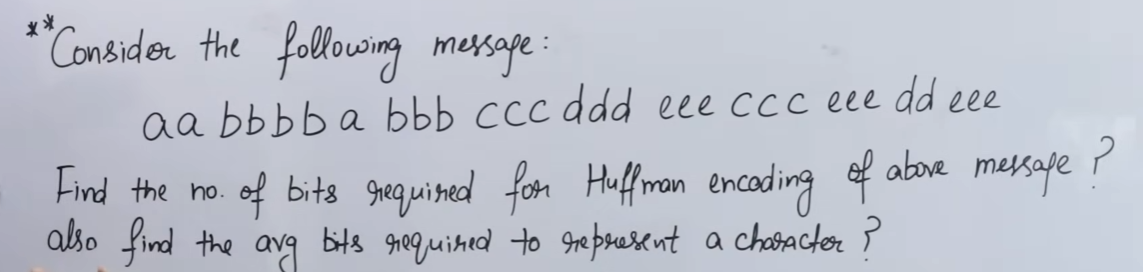 **Consider the following message:
aa bbbb a bbb ccc ddd eee ccc eee dd eee
Find the no. of bits required for Huffman encoding of above message?
also find the avg bits required to represent a character?